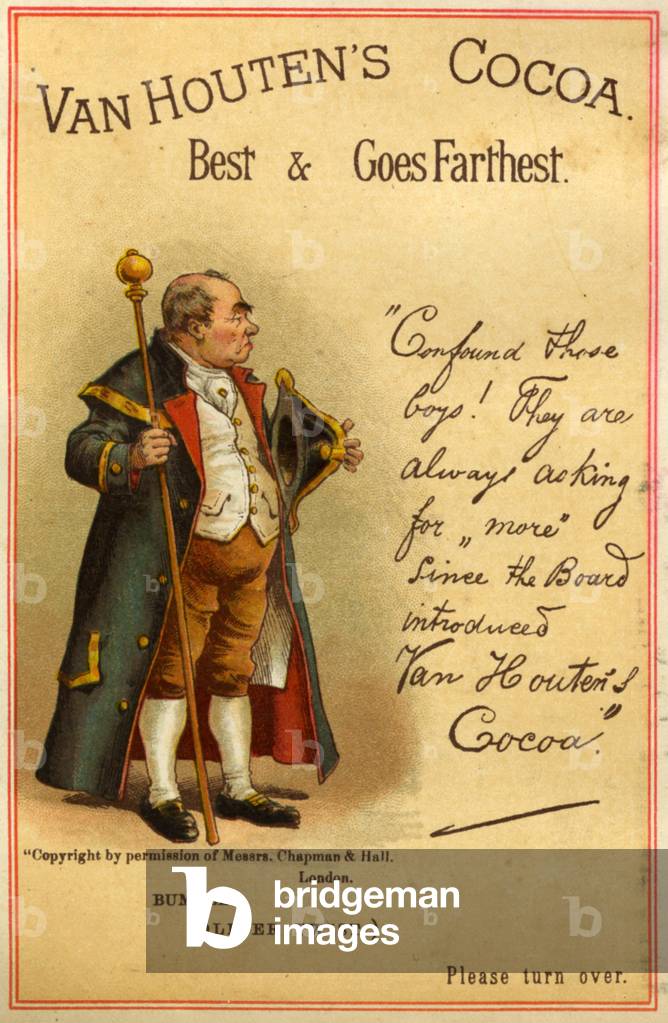 VAN HOUTEN'S COCOA.
Best & Goes Farthest.
"Confound those
boys! They are
always asking
for „more"
Since the Board
introduced
Van Houten's
Cocoa."
"Copyright by permission of Messrs. Chapman & Hall.
London.
bridgeman
images
Please turn over.